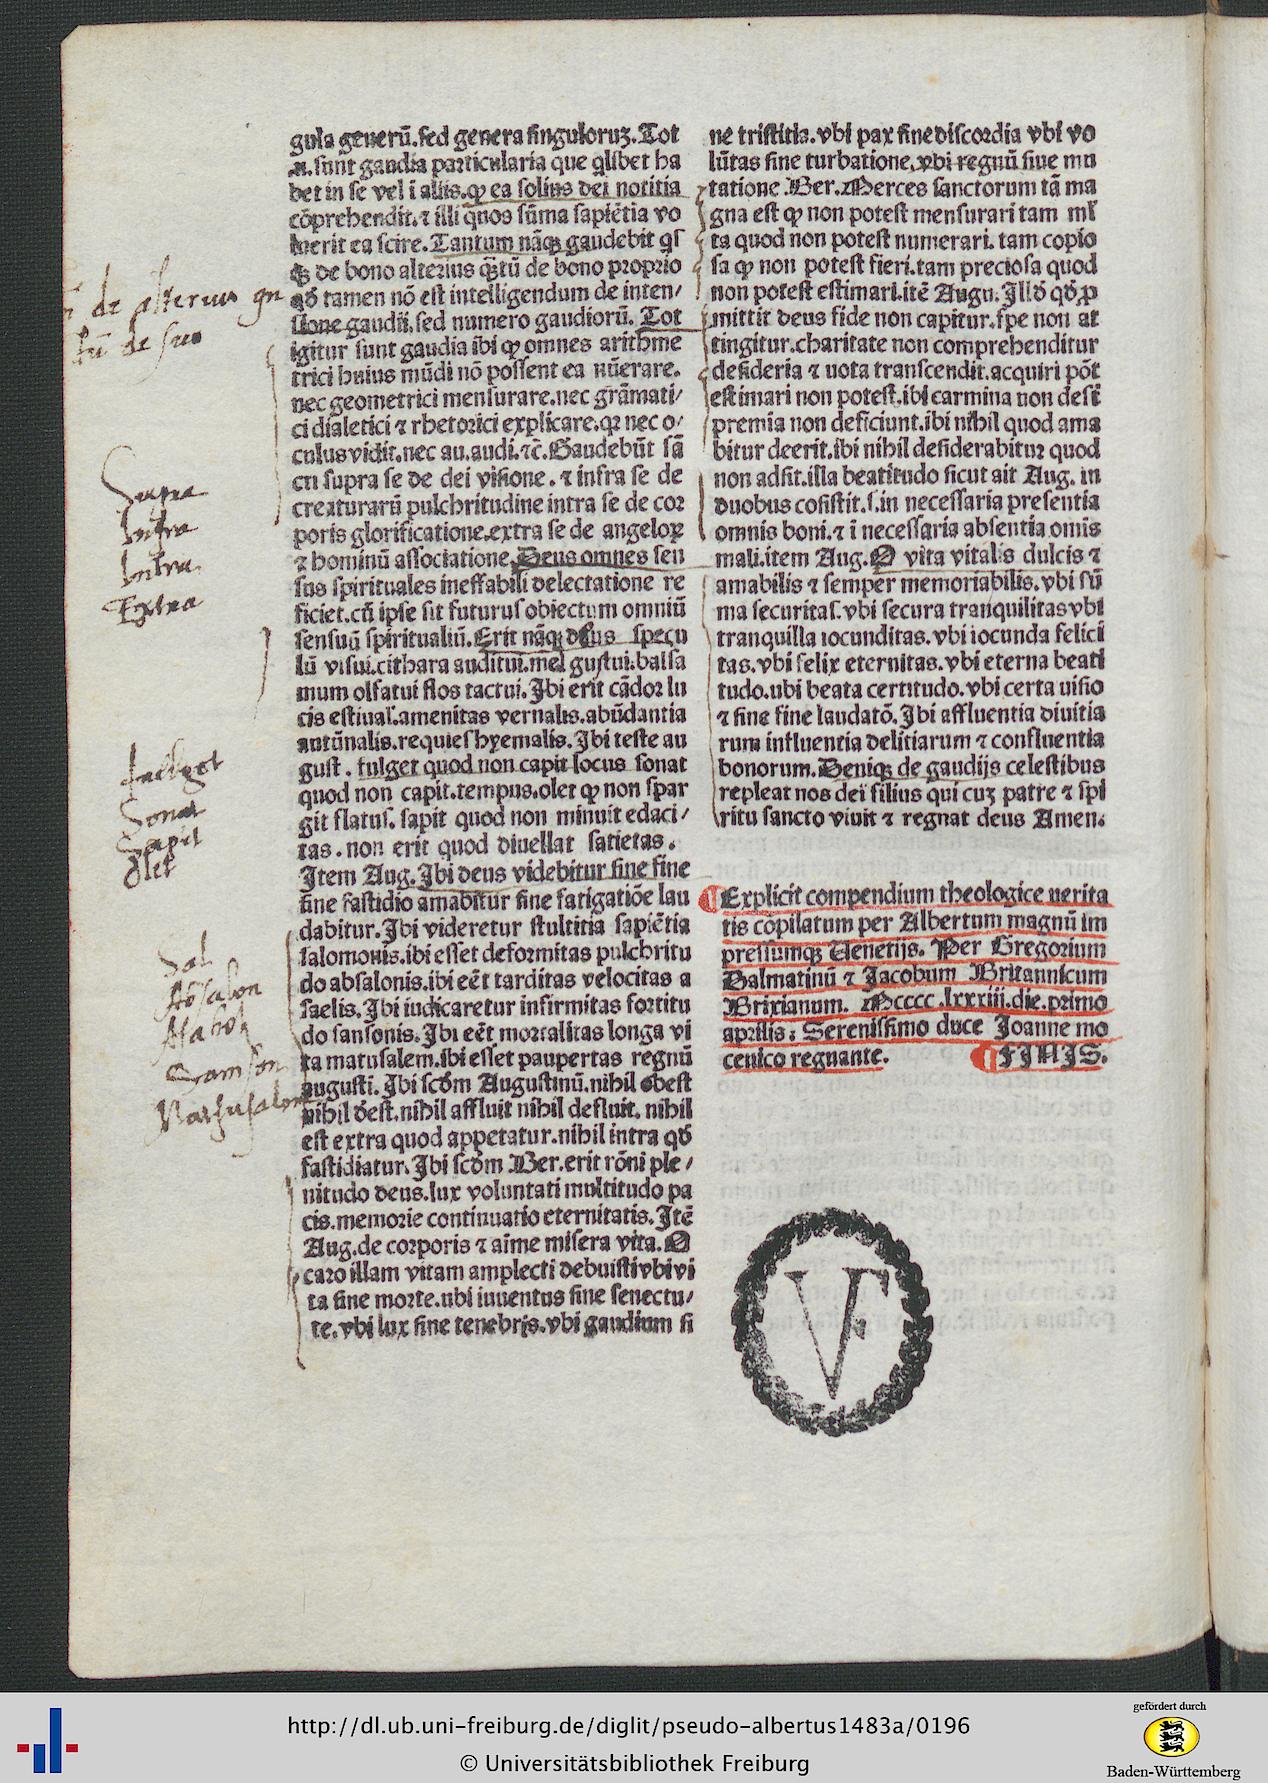 gula generū.sed genera singuloruꝫ.Tot
.n.sunt gaudia particularia que qlibet ha
bet in se vel ī aliis.ꝙ ea solius dei notitia
cōprehendit.⁊ illi quos sūma sapiētia vo
luerit ea scire.Tantum nāqꝫ gaudebit qs
qꝫ de bono alterius q̄tū de bono proprio
qd̄ tamen nō est intelligendum de inten/
sione gaudii.sed numero gaudiorū. Tot
igitur sunt gaudia ibi ꝙ omnes arithme
trici huius mūdi nō possent ea nūerare.
nec geometrici mensurare.nec grāmati/
ci dialetici ⁊ rhetorici explicare.qꝛ nec o/
culus vidit.nec au.audi.⁊c̄.Gaudebūt sā
cti supra se de dei visione.⁊ infra se de
creaturarū pulchritudine intra se de cor
poris glorificatione.extra se de angeloꝝ
⁊ hominū associatione.Deus omnes sen
sus spirituales ineffabili delectatione re
ficiet.cū ipse sit futurus obiectum omniū
sensuū spiritualiū.Erit nāqꝫ deus specu
lū visui.cithara auditui.mel gustui.balsa
mum olfatui flos tactui.Ibi erit cādor lu
cis estiual'.amenitas vernalis.abūdantia
autūnalis.requies hyemalis.Ibi teste au
gust. fulget quod non capit locus sonat
quod non capit.tempus.olet ꝙ non spar
git flatus. sapit quod non minuit edaci/
tas.non erit quod diuellat satietas.
Item Aug.Ibi deus videbitur sine fine
sine fastidio amabitur sine fatigatiōe lau
dabitur.Ibi videretur stultitia sapiētia
salomonis.ibi esset deformitas pulchritu
do absalonis.ibi eēt tarditas velocitas a
saelis.Ibi iudicaretur infirmitas fortitu
do sansonis.Ibi eēt mortalitas longa vi
ta matusalem.ibi esset paupertas regnū
augusti.Ibi scd̄m Augustinū.nihil obest
nihil dēst.nihil affluit nihil defluit. nihil
est extra quod appetatur.nihil intra qd̄
fastidiatur.Ibi scd̄m Ber.erit rōni ple/
nitudo deus.lux voluntati multitudo pa
cis.memorie continuatio eternitatis.Itē
Aug.de corporis ⁊ aīme misera vita.O
caro illam vitam amplecti debuisti vbi vi
ta sine morte.ubi iuuentus sine senectu/
te.vbi lux sine tenebris.vbi gaudium si
ne tristitia.vbi pax sine discordia vbi vo
lūtas sine turbatione.vbi regnū sine mu
tatione Ber.Merces sanctorum tā ma
gna est ꝙ non potest mensurari tam ml̄
ta quod non potest numerari.tam copio
sa ꝙ non potest fieri.tam preciosa quod
non potest estimari.itē Augu.Illd̄ qd̄ ꝓ
mittit deus fide non capitur.spe non at
tingitur.charitate non comprehenditur
desideria ⁊ uota transcendit.acquiri pōt
estimari non potest.ibi carmina non desi
premia non deficiunt.ibi nihil quod ama
bitur deerit.ibi nihil desiderabitur quod
non adsit.illa beatitudo sicut ait Aug. in
duobus cōsistit.s.in necessaria presentia
omnis boni.⁊ ī necessaria absentia omīs
mali.item Aug.O vita vitalis dulcis ⁊
amabilis ⁊ semper memoriabilis.vbi sū
ma securitas.vbi secura tranquilitas vbi
tranquilla iocunditas.vbi iocunda felici
tas.vbi felix eternitas.vbi eterna beati
tudo.ubi beata certitudo.vbi certa uisio
⁊ sine fine laudatō.Ibi affluentia diuitia
rum influentia delitiarum ⁊ confluentia
bonorum.Deniqꝫ de gaudijs celestibus
repleat nos dei filius qui cuꝫ patre ⁊ spi
ritu sancto viuit ⁊ regnat deus Amen.
¶Explicit compendium theologice uerita
tis cōpilatum per Albertum magnū im
pressumqꝫ Uenetijs. Per Gregorium
Dalmatinū ⁊ Jacobum Britannicum
Brixianum. Mcccc.lxxxiii.die.primo
aprilis: Serenissimo duce Joanne mo
cenico regnante. ¶FINIS.
de alterius qn
tū de suo
Supra
Infra
Intra
Extra
fulget
Sonat
Sapit
Olet
Sal
Absalon
Asahel
Samson
Mathusalem
VF
http://dl.ub.uni-freiburg.de/diglit/pseudo-albertus1483a/0196
© Universitätsbibliothek Freiburg
gefördert durch
Baden-Württemberg